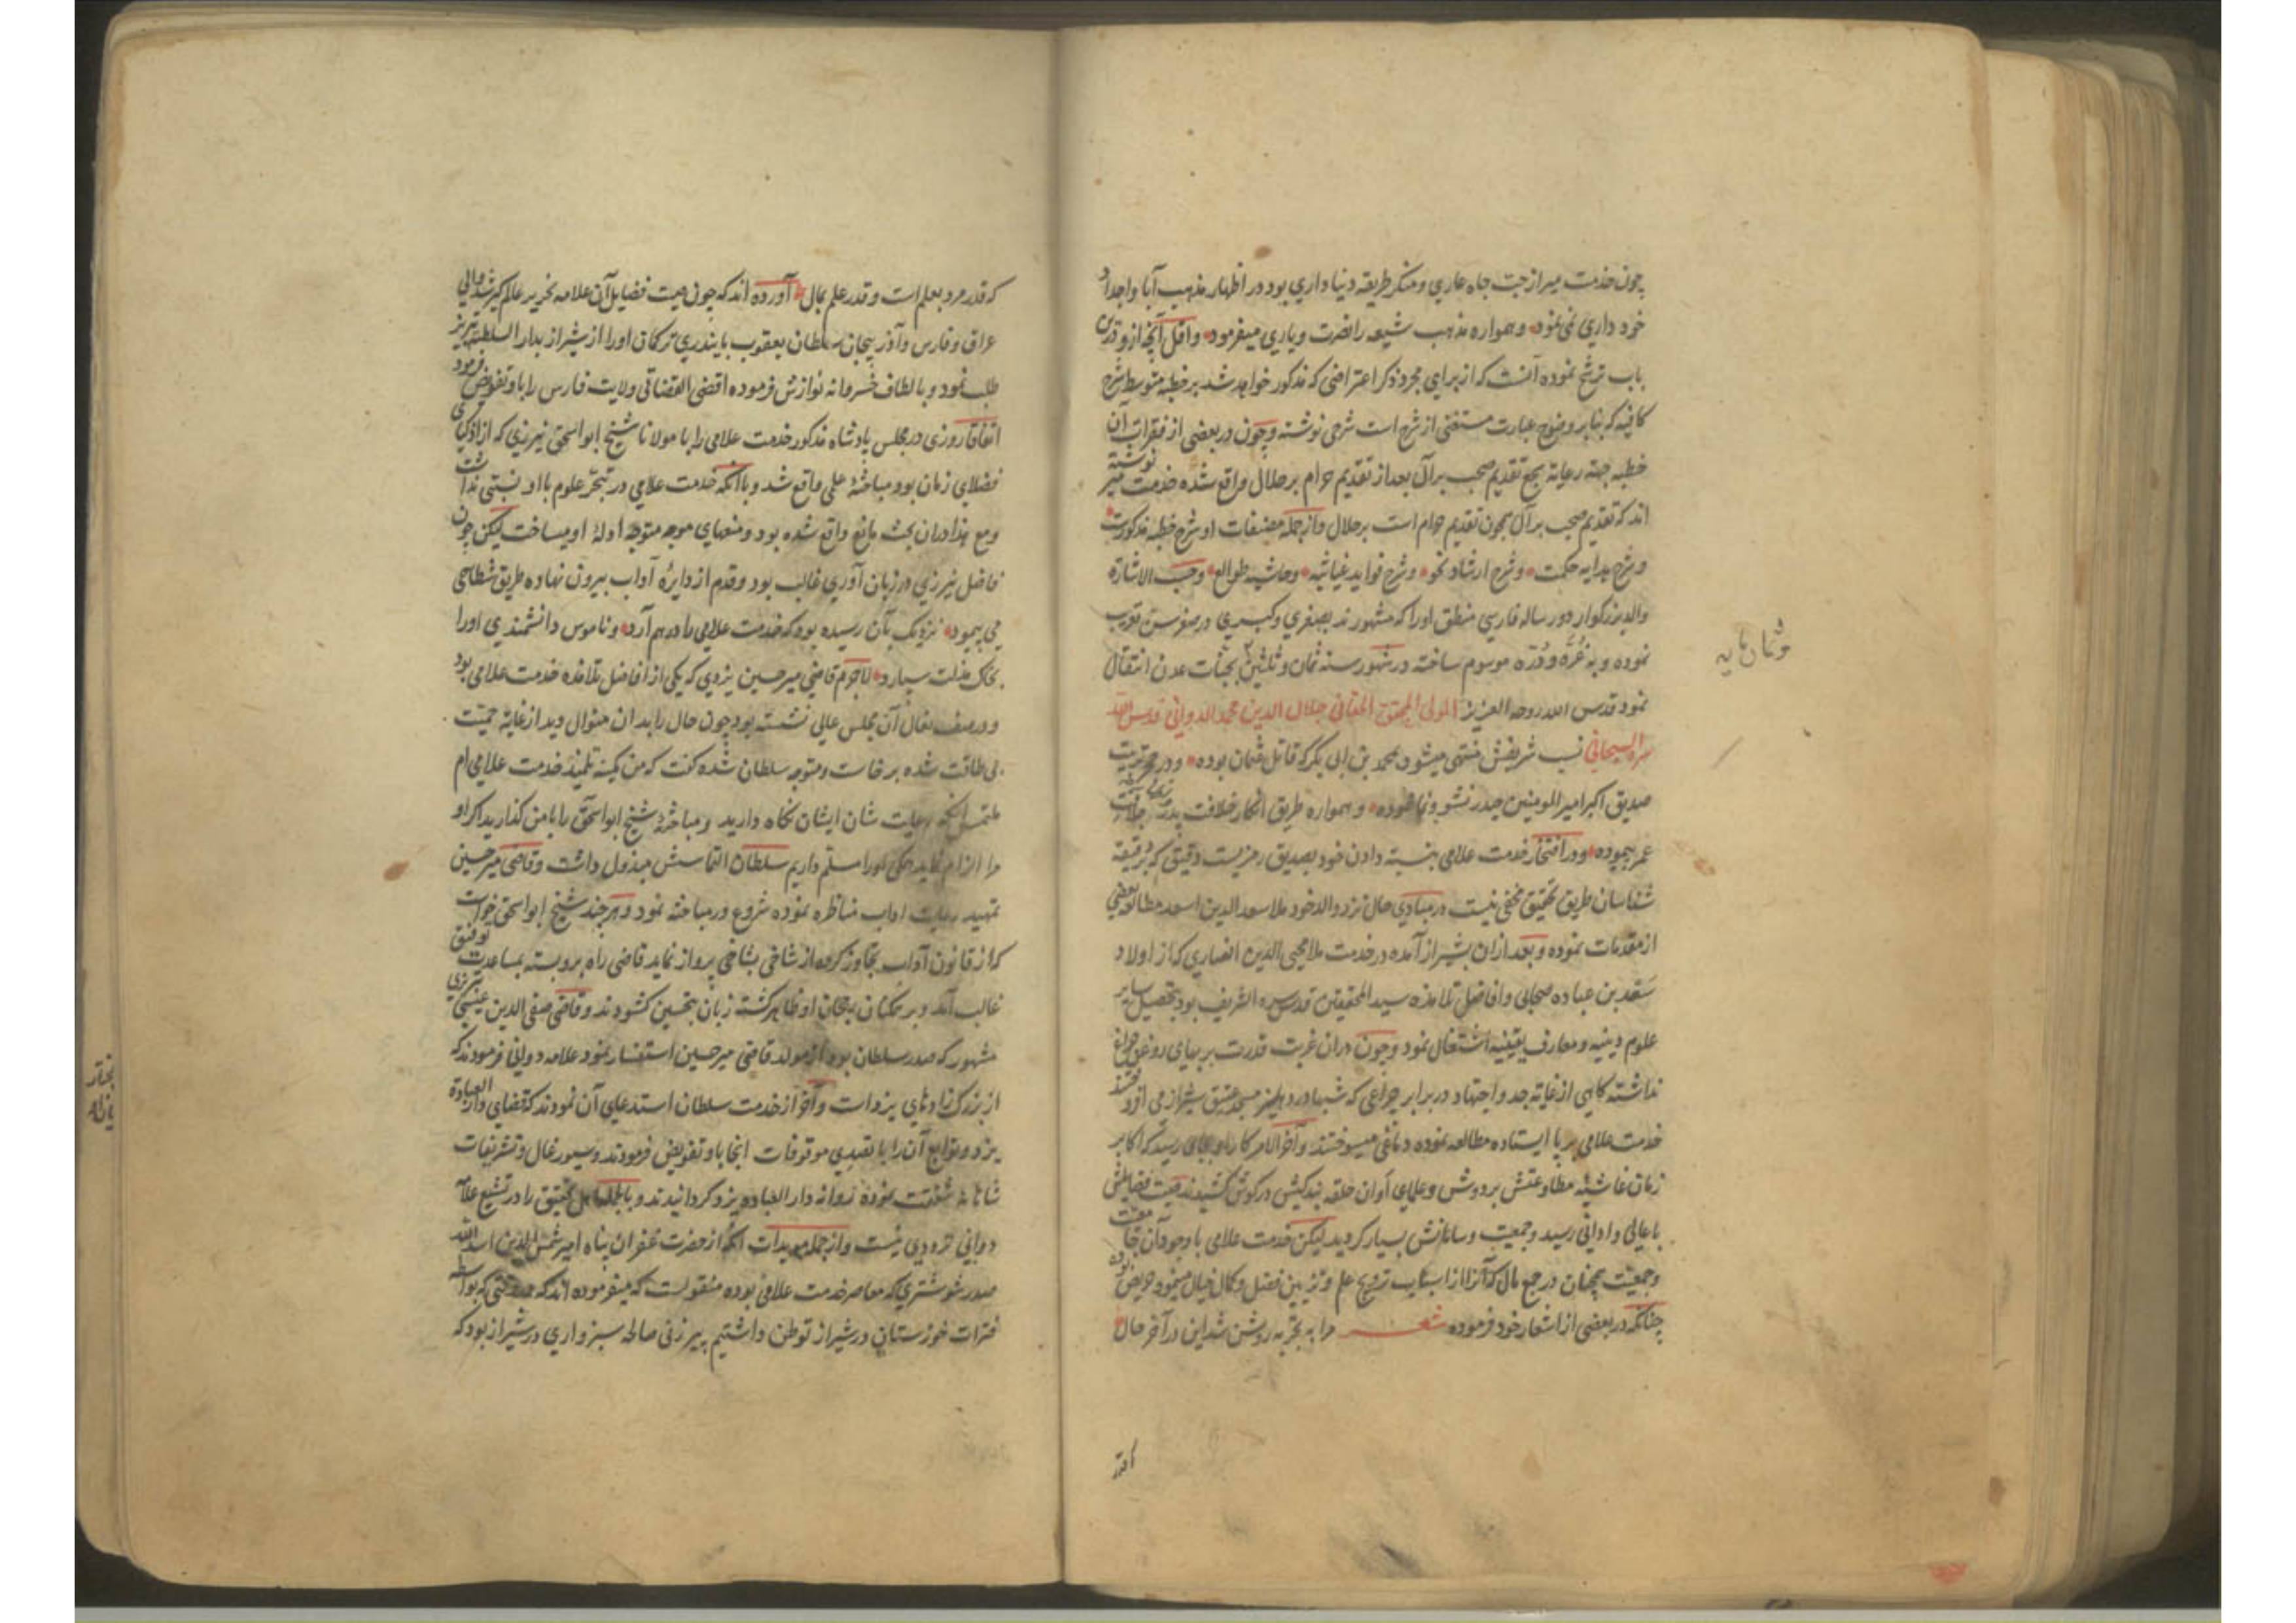 چون خدمت میر از حب جاه عاری و منکر طریقه دنیا داری بود در اظهار مذهب آبا و اجداد
خود داری نمی نمود و همواره مذهب شیعه را نصرت و یاری میفرمود و اقل آنچه از و درین
باب ترشح نموده آنست که از برای مجرد ذکر اعتراضی که مذکور خواهد شد بر خطبه متوسط شرح
کافیه که بنابر وضوح عبارت مستغنی از شرح است شرحی نوشته و چون در بعضی از فقرات آن
خطبه جهة رعایة سجع تقدیم صحب بر آل بعد از تقدیم حرام بر حلال واقع شده خدمت میر نوشته
اند که تقدیم صحب بر آل همچون تقدیم حرام است بر حلال و از جمله مصنفات او شرح خطبه مذکورست
و شرح هدایه حکمت و شرح ارشاد نحو و شرح فواید غیاثیه و حاشیه طوالع و حسب الاشارة
والد بزرکوار دو رساله فارسی منطق او را که مشهورند بصغری و کبری در صغر سن تعریب
نموده و به غُرَّه و دُرَّه موسوم ساخته در شهور سنه ثمان و ثلثین بجنات عدن انتقال
وثمان مایه
نمود قدس الله روحه العزیز المولی المحقق الحقانی جلال الدین محمد الدوانی قدس الله
سره السبحانی نسب شریفش منتهی میشود بمحمد بن ابی بکر که قاتل عثمان بوده و در حجر تربیت
صدیق اکبر امیر المومنین حیدر نشو و نما نموده و همواره طریق انکار خلافت پدر
عمر پیموده و در افتخار خدمت علامی بنسبة دادن خود بصدیق رمزیست دقیق که بر دقیقه
شناسان طریق تحقیق مخفی نیست در مبادی حال نزد والد خود ملا سعد الدین اسعد مطالعه بعضی
از مقدمات نموده و بعد از ان بشیراز آمده در خدمت ملا محیی الدین انصاری که از اولاد
سَعَد بن عباده صحابی و افاضل تلامذه سید المحققین قدس سره الشریف بود بتحصیل سایر
علوم دینیه و معارف یقینیه اشتغال نمود و چون در ان غربت قدرت بر بهای روغن چراغ
نداشته کاهی از غایة جد و اجتهاد در برابر چراغی که شبها در دهلیز مسجد عتیق شیراز می افروختند
خدمت علامی بر پا ایستاده مطالعه نموده دماغی میسوختند و آخر الامر کار او بجایی رسید که اکابر
زمان غاشیه مطاوعتش بر دوش و علمای آوان حلقه بندکیش در کوش کشیدند صیت فضایلش
باعالی و ادانی رسید و جمعیت و سامانش بسیار کردید لیکن خدمت علامی با وجود آن
و جمعیت همچنان در جمع مال که آنرا از اسباب ترویج علم و تزیین فضل و کمال خیال مینمود حریص بوده
چنانکه در بعضی از اشعار خود فرموده شعر مرا به تجربه روشن شد این در آخر حال
که قدر
که قدر مرد بعلم است و قدر علم بمال آورده اند که چون صیت فضایل آن علامه نحریر عالم کیر شد والی
عراق و فارس و آذربیجان سلطان یعقوب بایندری ترکمان او را از شیراز بدار السلطنه تبریز
طلب نمود و بالطاف خسروانه نوازش فرموده اقضی القضاتی ولایت فارس را باو تفویض فرمود
اتفاقا روزی در مجلس پادشاه مذکور خدمت علامی را با مولانا شیخ ابو اسحق نیرزی که از اذکیای
فضلای زمان بود مباحثهٔ علمی واقع شد و با آنکه خدمت علامی در تبحّر علوم با او نسبتی نداشت
و مع هذا در ان بحث مانع واقع شده بود و منعهای موجه متوجه ادلهٔ او میساخت لیکن چون
فاضل نیرزی در زبان آوری غالب بود و قدم از دایرهٔ آداب بیرون نهاده طریق شطاحی
می پیمود نزدیک بآن رسیده بود که خدمت علامی را درهم آرد و ناموس دانشمندی او را
بخاک مذلت سپارد لاجرم قاضی میر حسین یزدی که یکی از افاضل تلامذه خدمت علامی بود
و در صف نعال آن مجلس عالی نشسته بود چون حال را بدان منوال دید از غایة حمیت
بی طاقت شده برخاست و متوجه سلطان شده کفت که من کمینه تلمیذ خدمت علامی ام
ملتمس آنکه رعایت شان ایشان نکاه دارید و مباحثهٔ شیخ ابو اسحق را با من کذارید اکر او
مرا الزام نماید همکی او را مسلم داریم سلطان التماسش مبذول داشت و قاضی میر حسین
تمهید رعایت آداب مناظره نموده شروع در مباحثه نمود و هرچند شیخ ابو اسحق خواست
که از قانون آداب تجاوز کرده از شاخی بشاخی پرواز نماید قاضی راه بر و بسته بمساعدت توفیق
غالب آمد و بر همکنان رجحان او ظاهر کشته زبان بتحسین کشودند و قاضی صفی الدین عیسی تبریزی
مشهور که صدر سلطان بود از مولد قاضی میر حسین استفسار نمود علامه دوانی فرمودند که
از بزرک زادهای یزد است و آخر از خدمت سلطان استدعای آن نمودند که قضای دار العبادة
یزد و توابع آن را با تصدی موقوفات آنجا باو تفویض فرمودند و سیورغال و تشریفات
شاهانه شفقت نموده روانه دار العباده یزد کردانیدند و بالجمله اهل تحقیق را در تشیع علامه
دوانی ترددی نیست و از جمله مویدات آنکه از حضرت غفران پناه امیر شمس الدین اسد الله
صدر شوشتری که معاصر خدمت علامی بوده منقولست که میفرموده اند که در وقتی که بواسطه
فترات خوزستان در شیراز توطن داشتیم پیر زنی صالحه سبزواری در شیراز بود که